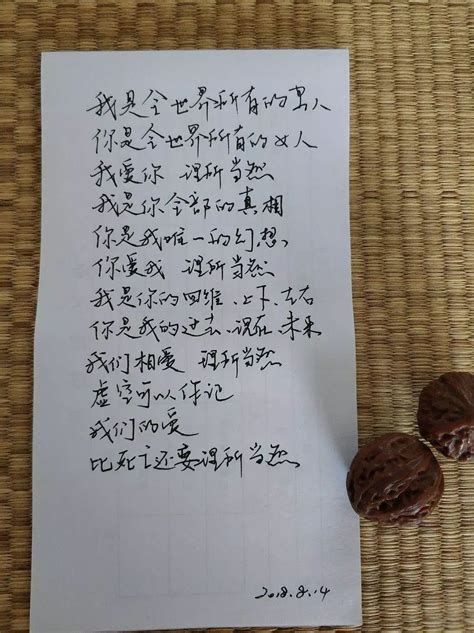 我是全世界所有的男人
你是全世界所有的女人
我爱你 理所当然
我是你全部的真相
你是我唯一的幻想
你爱我 理所当然
我是你的四维、上下、左右
你是我的过去、现在、未来
我们相爱 理所当然
虚空可以作记
我们的爱
比死亡还要理所当然
2018.8.14